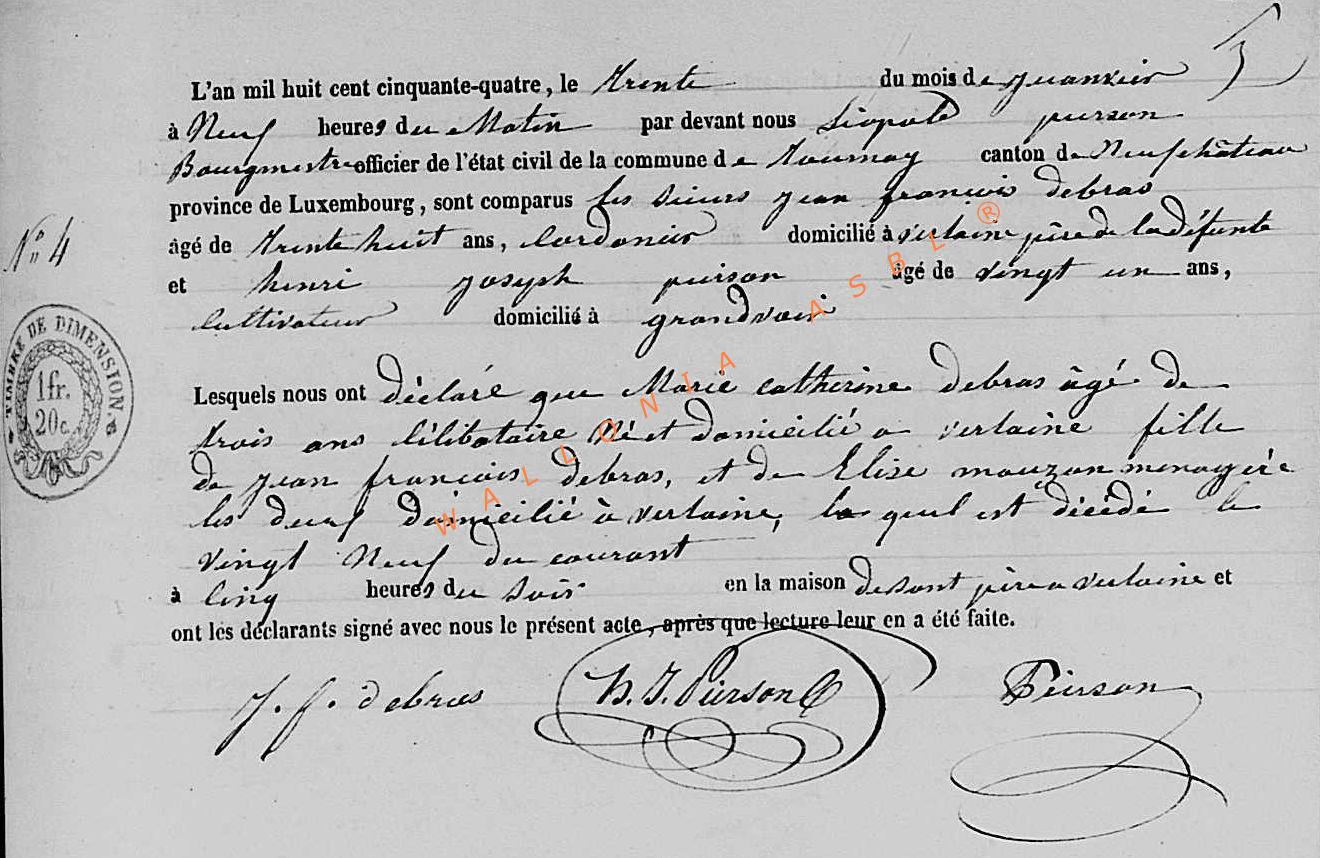 5
L'an mil huit cent cinquante-quatre, le trente du mois de Januvier
à Neuf heures du Matin par devant nous Léopold pierson
Bourgmestre officier de l'état civil de la commune de tournay canton de Neufchâteau
province de Luxembourg, sont comparus les sieurs jean françois debras
âgé de trente huit ans, Cordonier domicilié à verlaine père de la défunte
et henri joseph pierson âgé de vingt un ans,
Cultivateur domicilié à grandvoir
N° 4
TIMBRE DE DIMENSION. B
1 fr.
20 c.
Lesquels nous ont déclaré que Marie Catherine debras âgé de
trois ans Célibataire Né et domicilié a verlaine fille
de jean francois debras, et de Elise mouzon menagère
les deux domicilié à verlaine, la quel est décédé le
vingt Neuf du courant
à Cinq heures du soir en la maison de sont père a verlaine et
ont les déclarants signé avec nous le présent acte, après que lecture leur en a été faite.
J. f. debras H. J. Pierson Pierson
WALLONIA ASBL ®